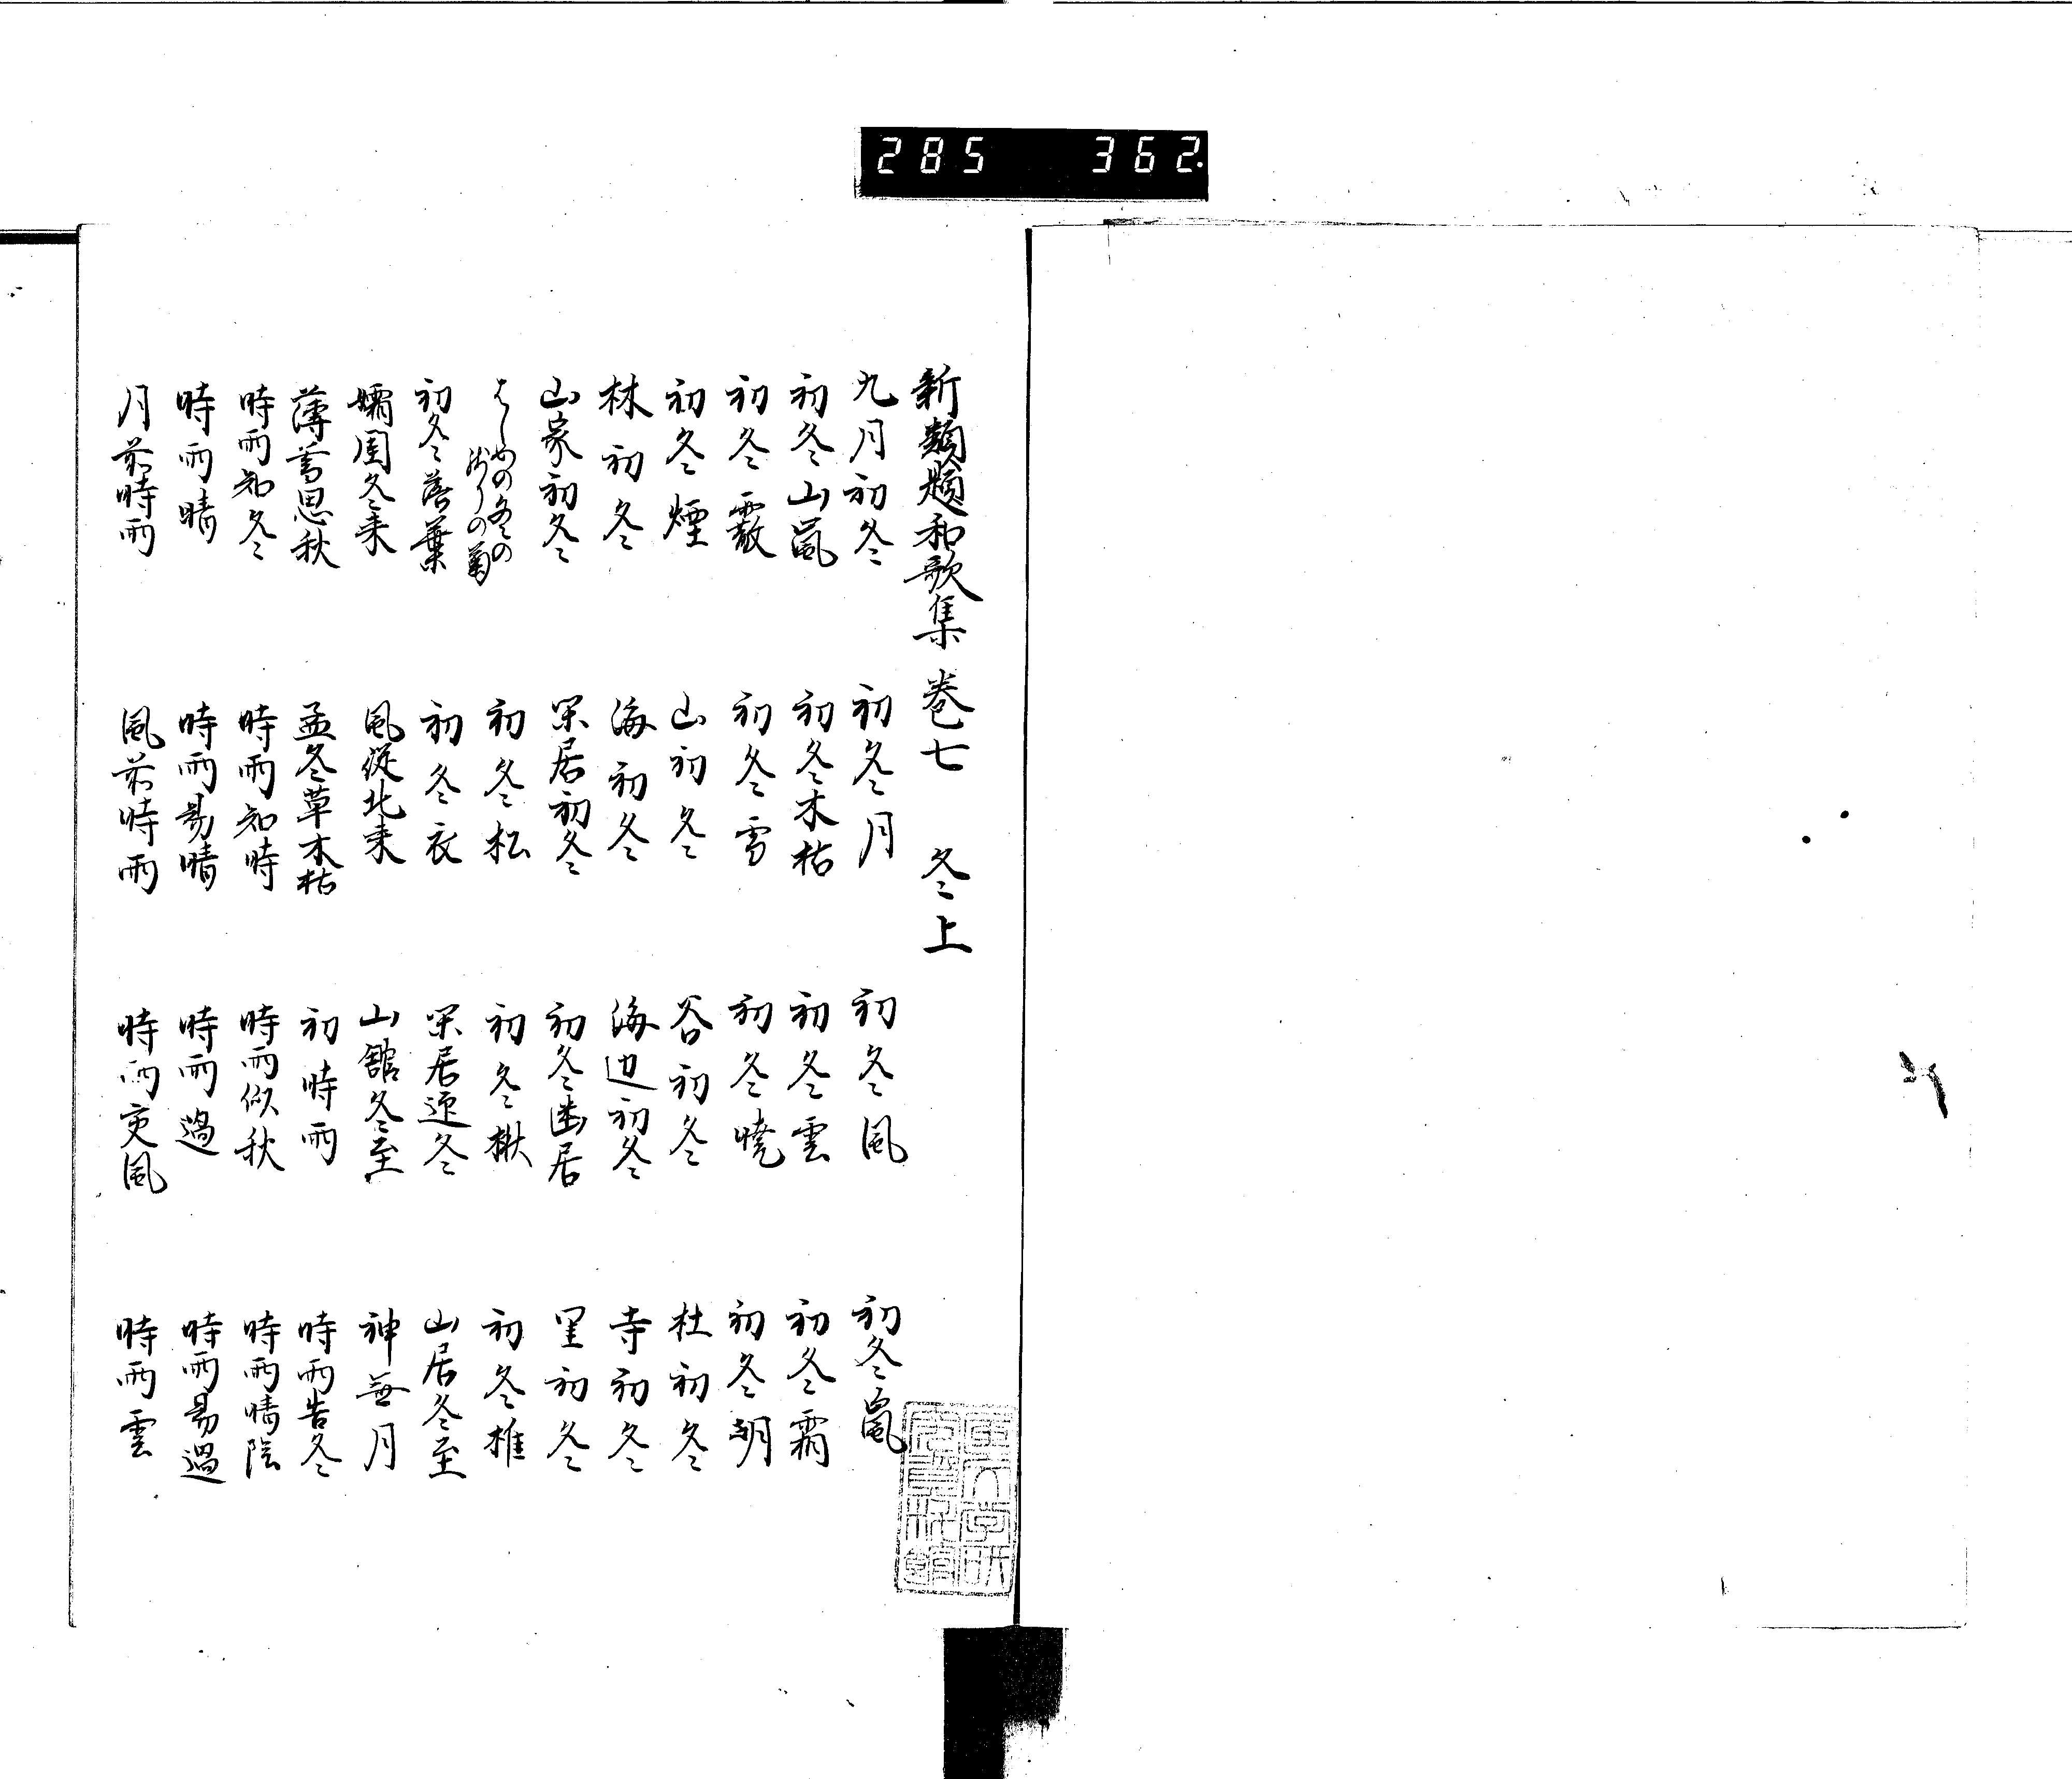 285 362
新類題和歌集 巻七 冬上
九月初冬 初冬月 初冬風 初冬嵐
初冬山嵐 初冬木枯 初冬雲 初冬霜
初冬霰 初冬雪 初冬暁 初冬朝
初冬煙 山初冬 谷初冬 杜初冬
林初冬 海初冬 海辺初冬 寺初冬
山家初冬 閑居初冬 初冬幽居 里初冬
はしめの冬の残りの菊 初冬松 初冬楸 初冬椎
初冬落葉 初冬衣 閑居迎冬 山居冬至
孀閨冬来 風従北来 山館冬至 神無月
薄暮思秋 孟冬草木枯 初時雨 時雨告冬
時雨知冬 時雨知時 時雨似秋 時雨晴陰
時雨晴 時雨易晴 時雨過 時雨易過
月前時雨 風前時雨 時雨交風 時雨雲